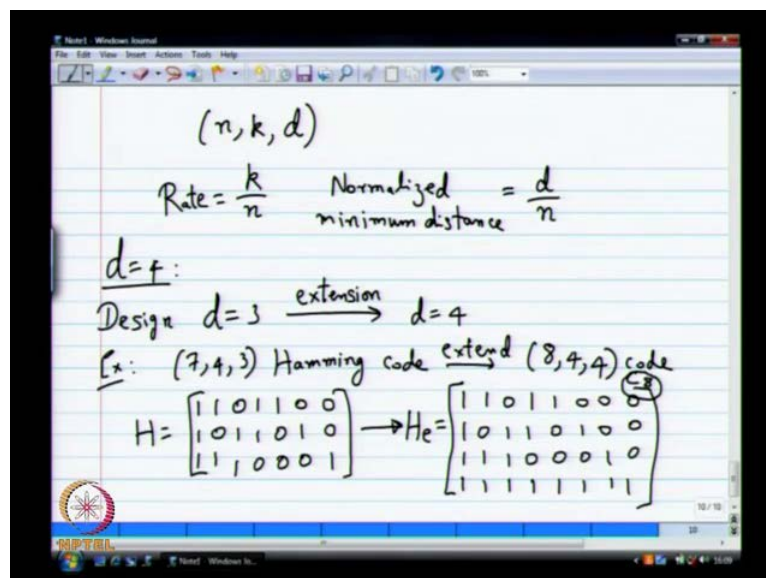 Note1 - Windows Journal
File Edit View Insert Actions Tools Help
100%
(n, k, d)
Rate = k/n Normalized minimum distance = d/n
d=4 :
Design d=3 extension → d=4
Ex: (7,4,3) Hamming code extend → (8,4,4) code
H = [1 1 0 1 1 0 0 → He = [1 1 0 1 1 0 0 0
1 0 1 1 0 1 0 1 0 1 1 0 1 0 0
1 1 1 0 0 0 1] 1 1 1 0 0 0 1 0
1 1 1 1 1 1 1 1]
10 / 10
10
NPTEL
Note1 - Windows Jo...
16:09